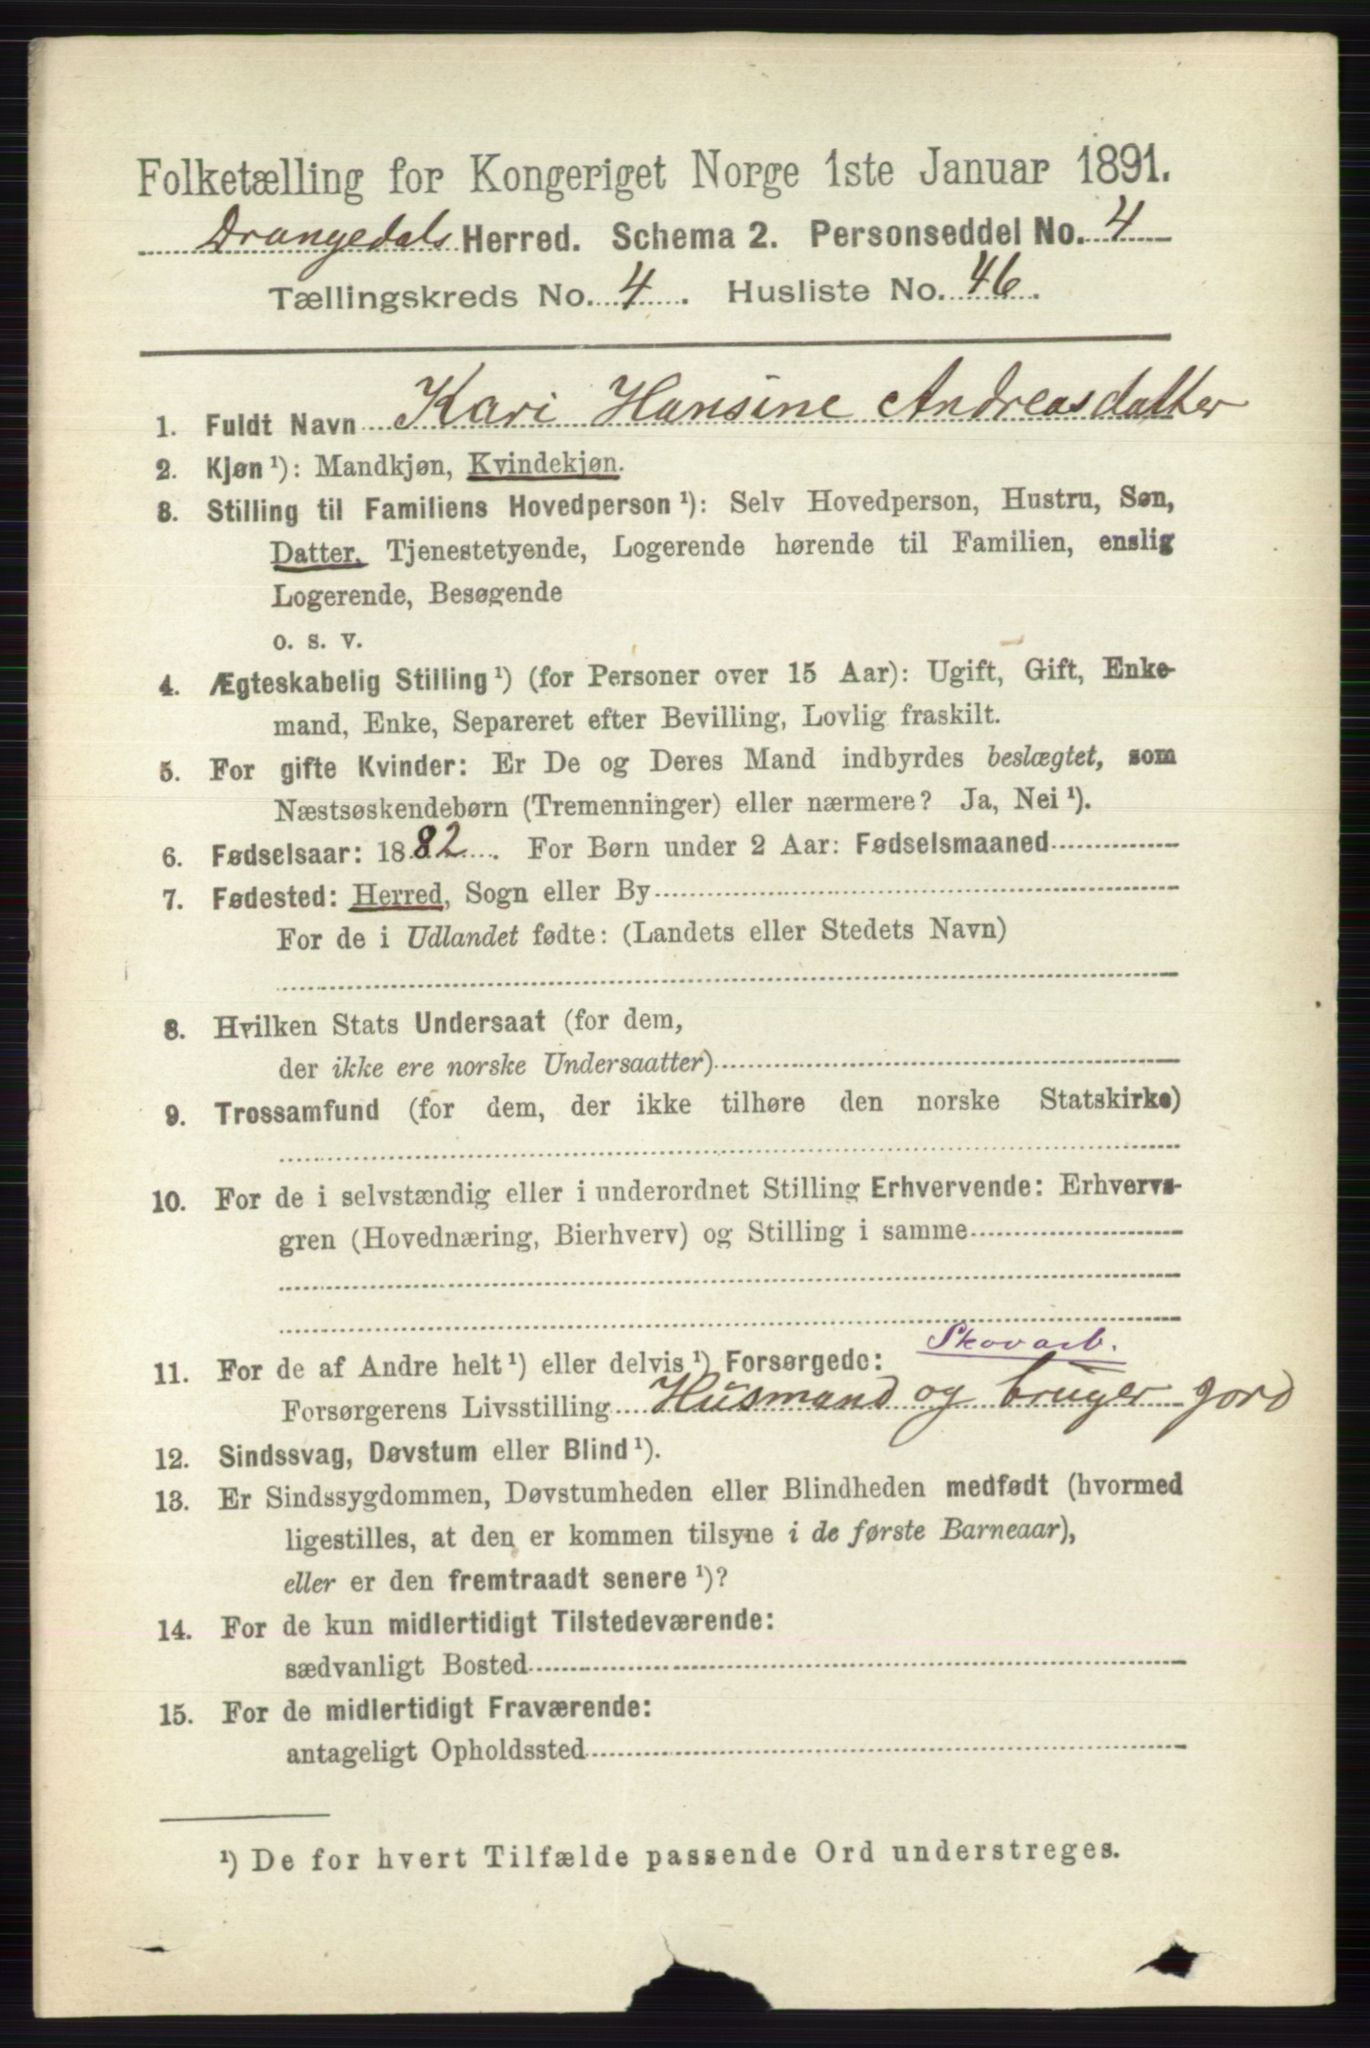 Folketælling for Kongeriget Norge 1ste Januar 1891.
Drangedals Herred. Schema 2. Personseddel No. 4
Tællingskreds No. 4. Husliste No. 46.
1. Fuldt Navn Kari Hansine Andreasdatter
2. Kjøn ¹): Mandkjøn, Kvindekjøn.
3. Stilling til Familiens Hovedperson ¹): Selv Hovedperson, Hustru, Søn,
Datter, Tjenestetyende, Logerende hørende til Familien, enslig
Logerende, Besøgende
o. s. v.
4. Ægteskabelig Stilling ¹) (for Personer over 15 Aar): Ugift, Gift, Enke-
mand, Enke, Separeret efter Bevilling, Lovlig fraskilt.
5. For gifte Kvinder: Er De og Deres Mand indbyrdes beslægtet, som
Næstsøskendebørn (Tremenninger) eller nærmere? Ja, Nei ¹).
6. Fødselsaar: 1882. For Børn under 2 Aar: Fødselsmaaned
7. Fødested: Herred, Sogn eller By
For de i Udlandet fødte: (Landets eller Stedets Navn)
8. Hvilken Stats Undersaat (for dem,
der ikke ere norske Undersaatter)
9. Trossamfund (for dem, der ikke tilhøre den norske Statskirke)
10. For de i selvstændig eller i underordnet Stilling Erhvervende: Erhvervs-
gren (Hovednæring, Bierhverv) og Stilling i samme
Skovarb.
11. For de af Andre helt ¹) eller delvis ¹) Forsørgede:
Forsørgerens Livsstilling Husmand og bruger jord
12. Sindssvag, Døvstum eller Blind ¹).
13. Er Sindssygdommen, Døvstumheden eller Blindheden medfødt (hvormed
ligestilles, at den er kommen tilsyne i de første Barneaar),
eller er den fremtraadt senere ¹)?
14. For de kun midlertidigt Tilstedeværende:
sædvanligt Bosted
15. For de midlertidigt Fraværende:
antageligt Opholdssted
¹) De for hvert Tilfælde passende Ord understreges.